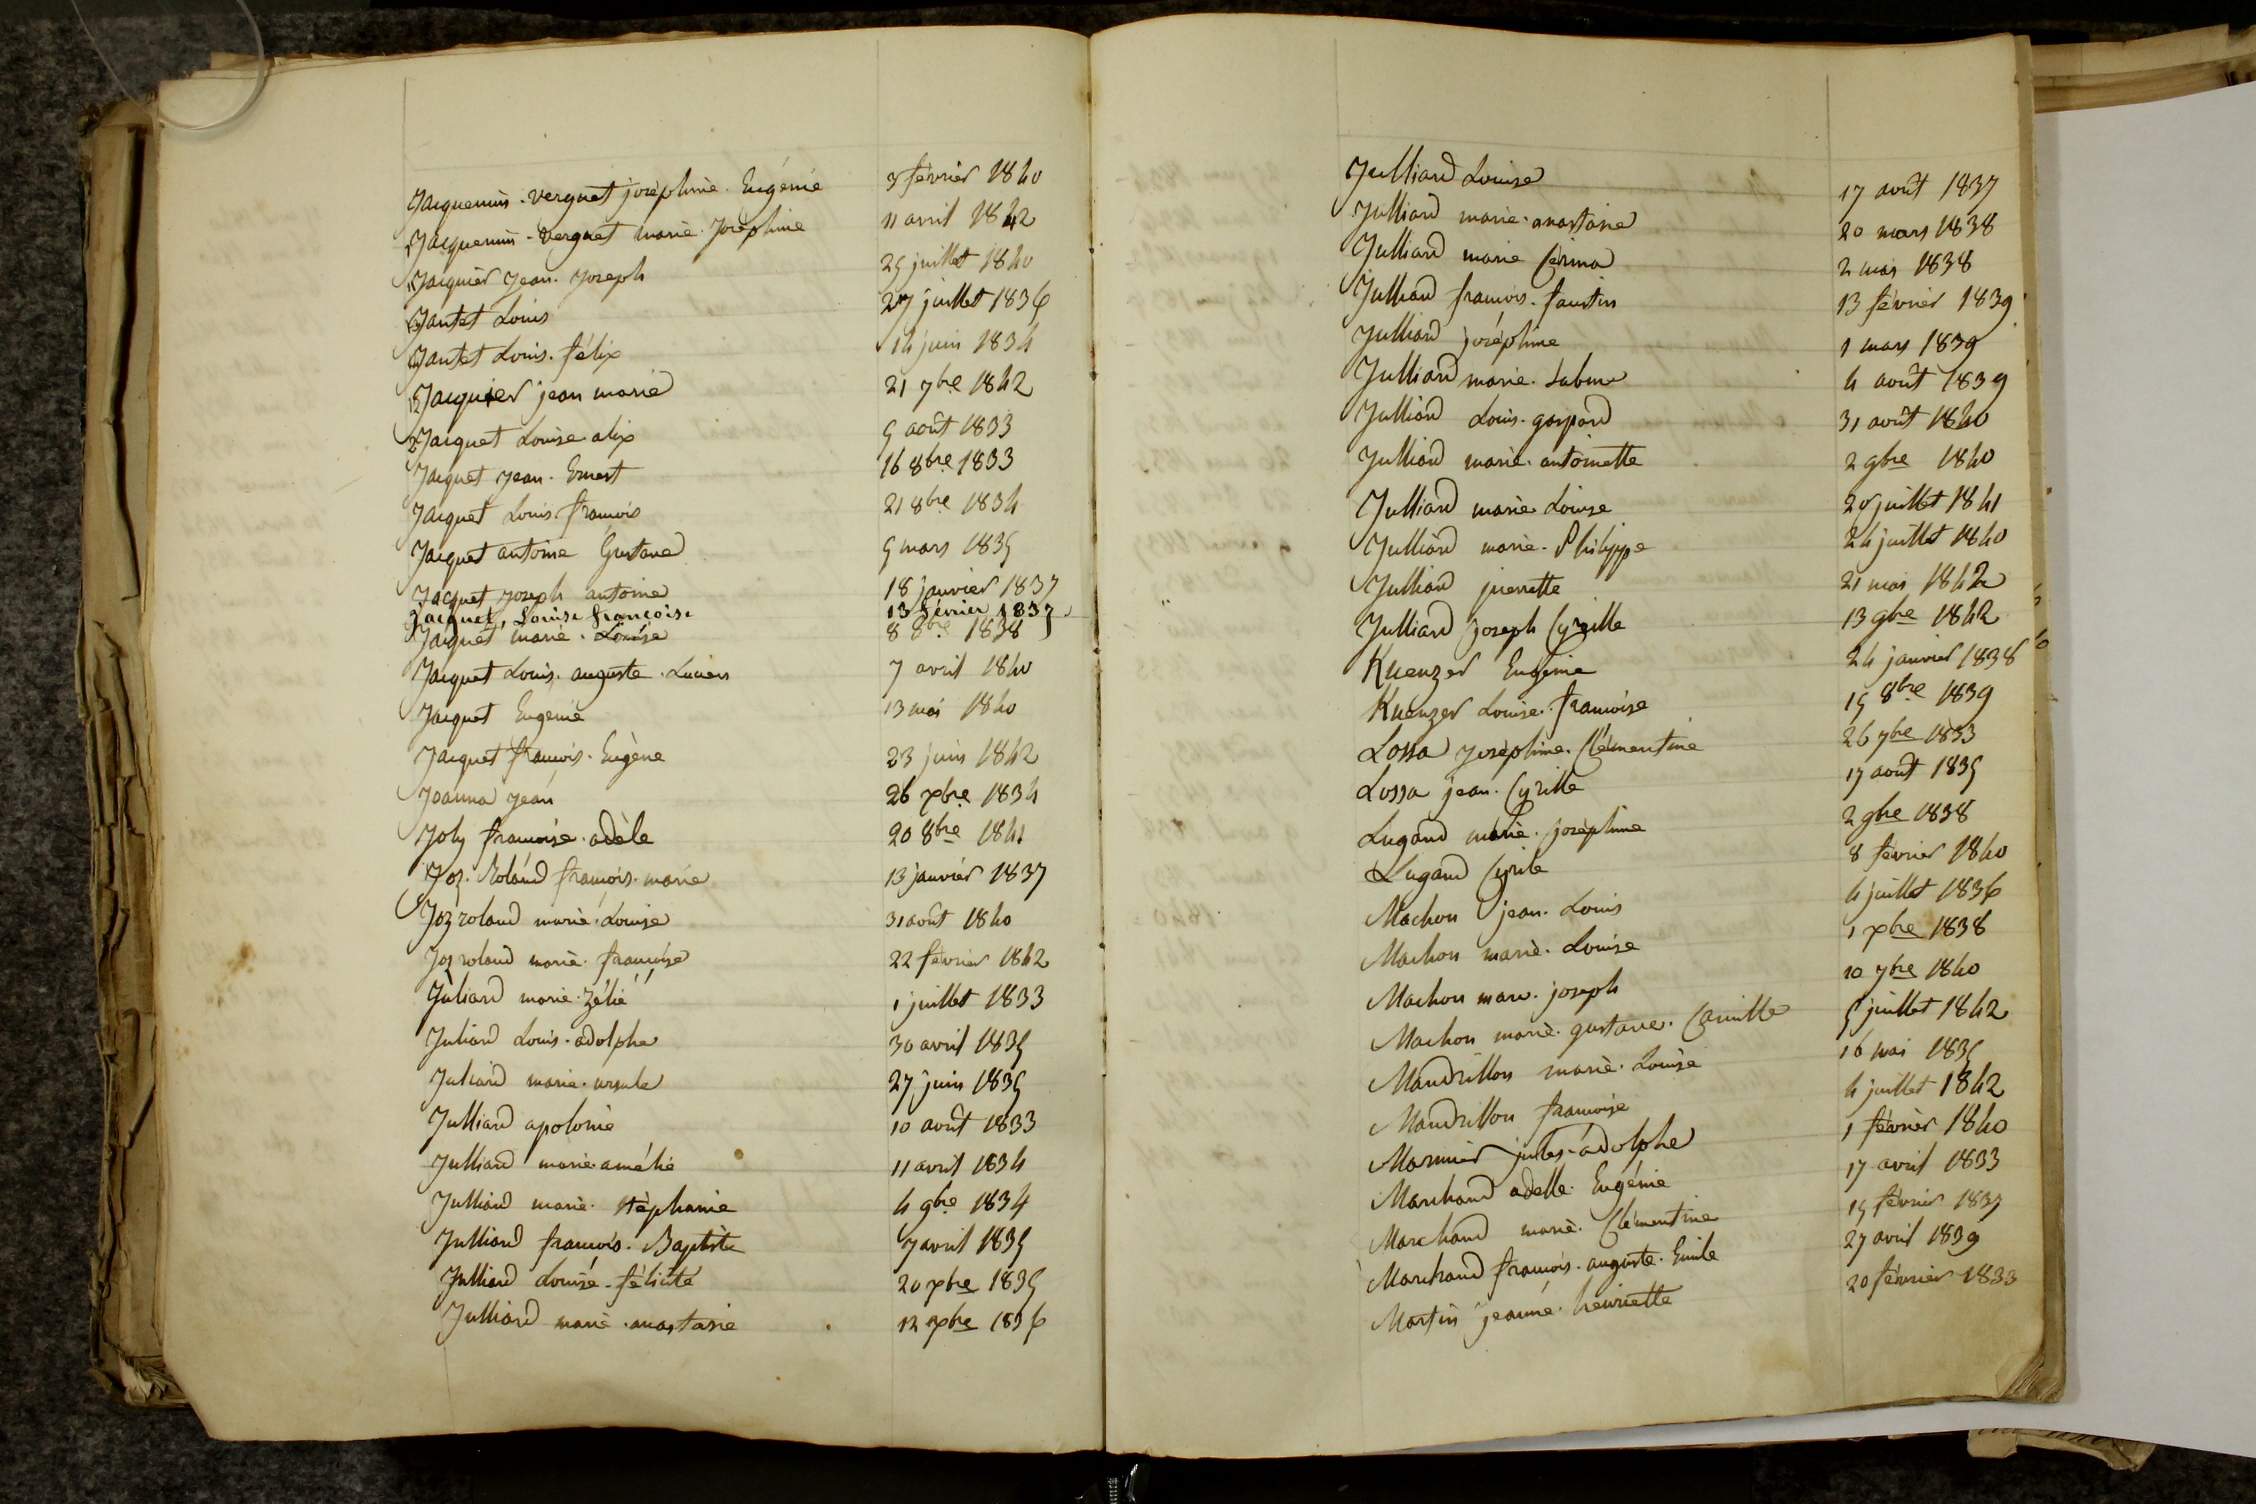 Jacquemin-Verguet joséphine Eugénie 3 février 1840
Jacquemin-Verguet marie Joséphine 11 avril 1842
Jacquier Jean Joseph 25 juillet 1840
Jantet Louis 27 juillet 1836
Jantet Louis félix 14 juin 1834
Jacquier jean marie 21 7bre 1842
Jacquet Louise alix 5 août 1833
Jacquet Jean Ernest 16 8bre 1833
Jacquet Louis françois 21 8bre 1834
Jacquet antoine Gustave 5 mars 1835
Jacquet Joseph antoine 18 janvier 1837
Jacquet, Louise françoise 13 février 1837
Jacquet marie Louise 8 8bre 1838
Jacquet Louis auguste Lucien 7 avril 1840
Jacquet Eugenie 13 mai 1840
Jacquet françois Eugène 23 juin 1842
Joanna Jean 26 xbre 1834
Joly françoise adèle 20 8bre 1841
Joz Roland françois marie 13 janvier 1837
Joz roland marie Louise 31 août 1840
Joz roland marie françoise 22 février 1842
Juliard marie Zélie 1 juillet 1833
Juliard Louis adolphe 30 avril 1835
Juliard marie ursule 27 juin 1835
Julliard apolonie 10 août 1833
Julliard marie amélie 11 avril 1834
Julliard marie stéphanie 4 9bre 1834
Julliard françois Baptiste 7 avril 1835
Julliard Louise félicité 20 xbre 1835
Julliard marie anastasie 12 xbre 1836
Julliard Louise 17 août 1837
Julliard marie anastasie 20 mars 1838
Julliard marie Cérina 2 mai 1838
Julliard françois faustin 13 février 1839
Julliard joséphine 1 mars 1839
Julliard marie Sabine 4 août 1839
Julliard Louis gaspard 31 août 1840
Julliard marie antoinette 2 9bre 1840
Julliard marie Louise 20 juillet 1841
Julliard marie Philippe 24 juillet 1840
Julliard pierrette 21 mai 1842
Julliard Joseph Cyrille 13 9bre 1842
Kuenzer Eugénie 24 janvier 1838
Kuenzer Louise françoise 15 8bre 1839
Lossa Joséphine Clémentine 26 7bre 1833
Lossa jean Cyrille 17 août 1835
Lugand marie joséphine 2 9bre 1838
Lugand Cyrile 8 février 1840
Machon jean Louis 4 juillet 1836
Machon marie Louise 1 xbre 1838
Machon marc joseph 10 7bre 1840
Machon marie gustave Camille 5 juillet 1842
Mandrillon marie Louise 16 mai 1835
Mandrillon françoise 4 juillet 1842
Marmier jules adolphe 1 février 1840
Marchand adelle Eugénie 17 avril 1833
Marchand marie Clémentine 15 février 1837
Marchand françois auguste Emile 27 avril 1839
Martin jeanne henriette 20 février 1833